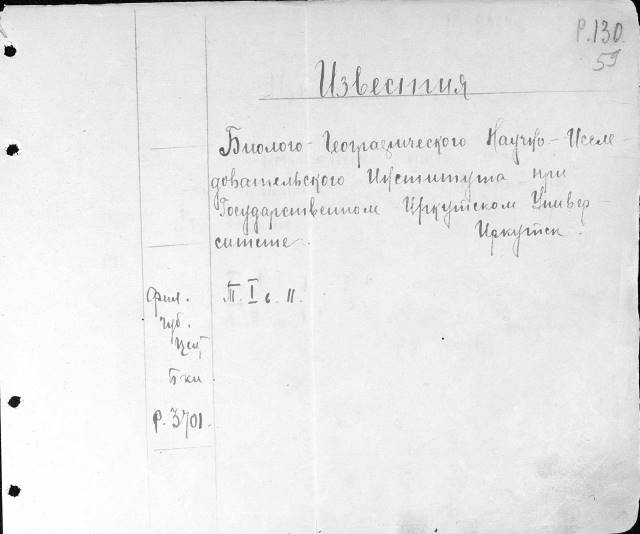 Р.130
59
Известия
Биолого-Географического Научно-Иссле-
довательского Института при
Государственном Иркутском Универ-
ситете. Иркутск.
Т. I в. II.
Фил.
Губ.
Цент.
Б-ки
Р. 3701.